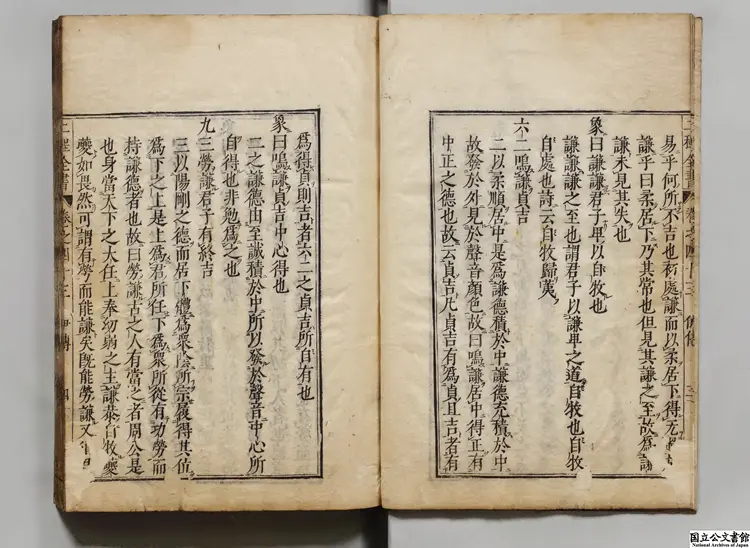 易乎何所不吉也初處謙而以柔居下得无
謙乎曰柔居下乃其常也但見其謙之至故爲
謙未見其失也
象曰謙謙君子卑以自牧也
謙謙謙之至也謂君子以謙卑之道自牧也自牧
自處也詩云自牧歸荑
六二鳴謙貞吉
二以柔順居中是爲謙德積於中謙德充積於中
故發於外見於聲音顏色故曰鳴謙居中得正有
中正之德也故云貞吉凡貞吉有爲貞且吉者有
二程全書 卷之四十三
爲得貞則吉者六二之貞吉所自有也
象曰鳴謙貞吉中心得也
二之謙德由至誠積於中所以發於聲音中心所
自得也非勉爲之也
九三勞謙君子有終吉
三以陽剛之德而居下體爲衆陰所宗履得其位
爲下之上是上爲君所任下爲衆所從有功勞而
持謙德者也故曰勞謙古之人有當之者周公是
也身當天下之大任上奉幼弱之主謙恭自牧夔
夔如畏然可謂有勞而能謙矣旣能勞謙又
二程全書 卷之四十三 伊傳 四
国立公文書館
National Archives of Japan